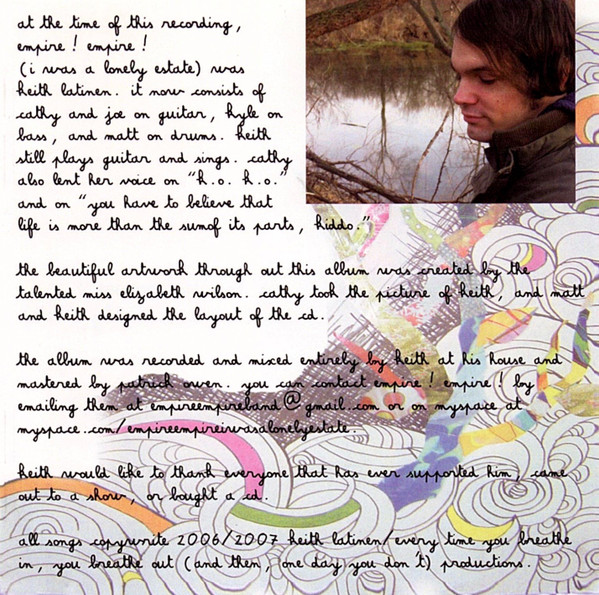 at the time of this recording,
empire! empire!
(i was a lonely estate) was
keith latinen. it now consists of
cathy and joe on guitar, kyle on
bass, and matt on drums. keith
still plays guitar and sings. cathy
also lent her voice on "k.o. k.o."
and on "you have to believe that
life is more than the sumof its parts, kiddo."
the beautiful artwork through out this album was created by the
talented miss elizabeth wilson. cathy took the picture of keith, and matt
and keith designed the layout of the cd.
the album was recorded and mixed entirely by keith at his house and
mastered by patrick owen. you can contact empire! empire! by
emailing them at empireempireband@gmail.com or on myspace at
myspace.com/empireempireiwasalonelyestate.
keith would like to thank everyone that has ever supported him, came
out to a show, or bought a cd.
all songs copywrite 2006/2007 keith latinen/every time you breathe
in, you breathe out (and then, one day you don't) productions.